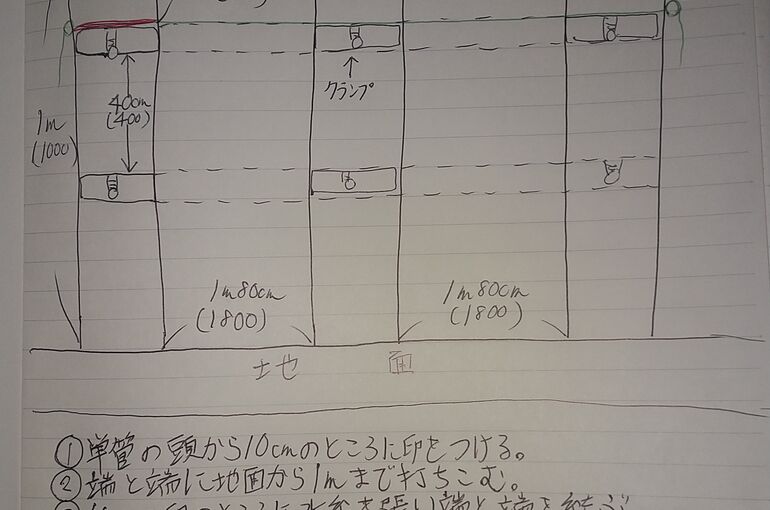 クランプ
40cm
(400)
1m
(1000)
1m80cm
(1800)
1m80cm
(1800)
土地 面
①単管の頭から10cmのところに印をつける。
②端と端に地面から1mまで打ちこむ。